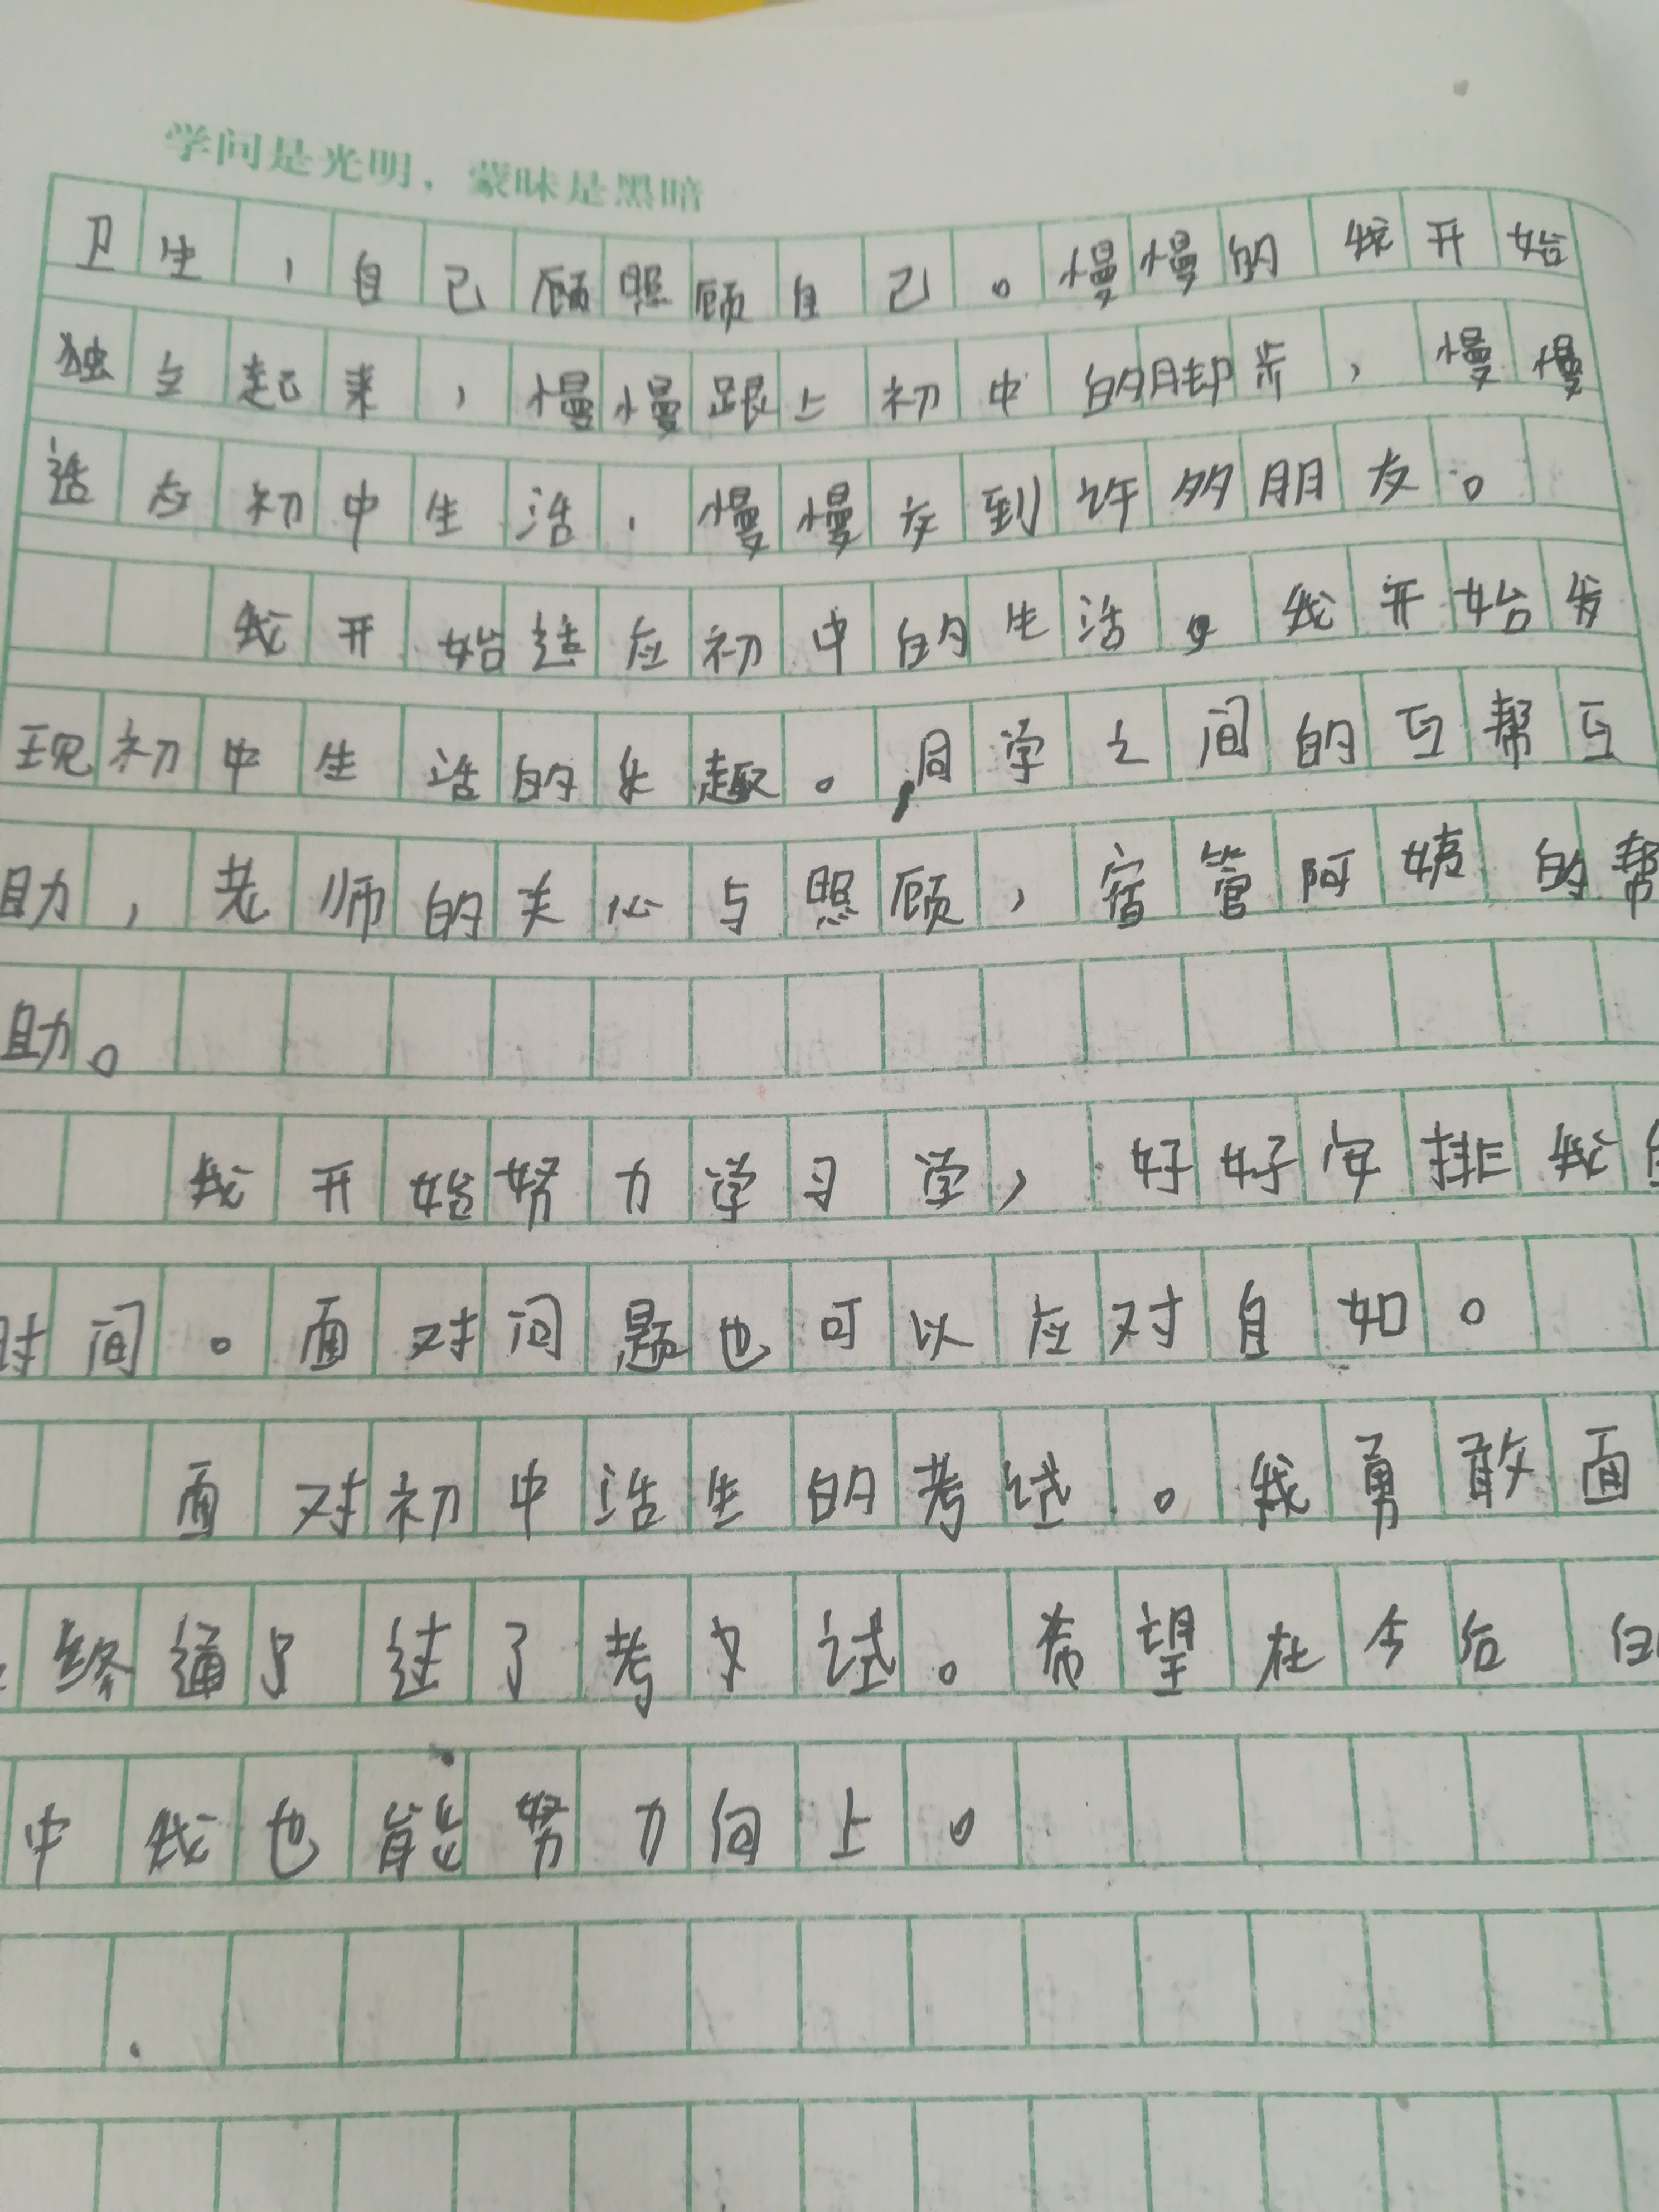 学问是光明，蒙昧是黑暗
卫生，自己顾照顾自己。慢慢的我开始
独立起来，慢慢跟上初中的脚步，慢慢
适应初中生活，慢慢交到许多朋友。
我开始适应初中的生活，我开始发
现初中生活的乐趣。同学之间的互帮互
助，老师的关心与照顾，宿管阿姨的帮
助。
我开始努力学习学，好好安排我
时间。面对问题也可以应对自如。
面对初中活生的考试。我勇敢面
终通了过了考试。希望在今后
中我也能努力向上。